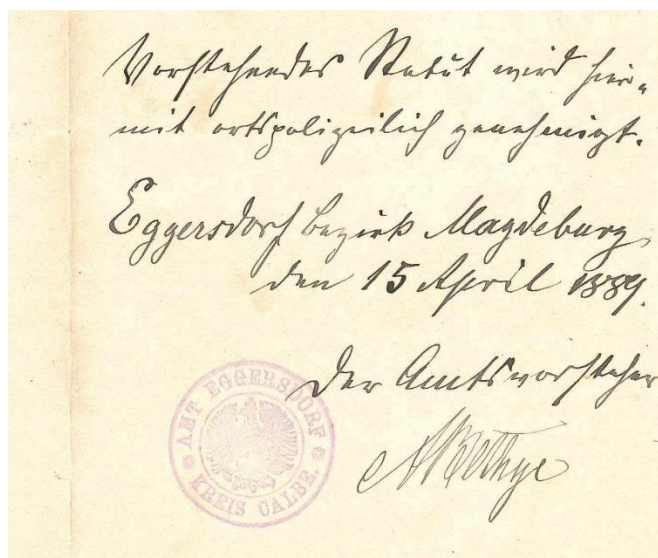 Vorstehendes Statut wird hier-
mit ortspolizeilich genehmigt.
Eggersdorf Bezirk Magdeburg
den 15 April 1889.
Der Amtsvorsteher
AMT EGGERSDORF
KREIS CALBE.